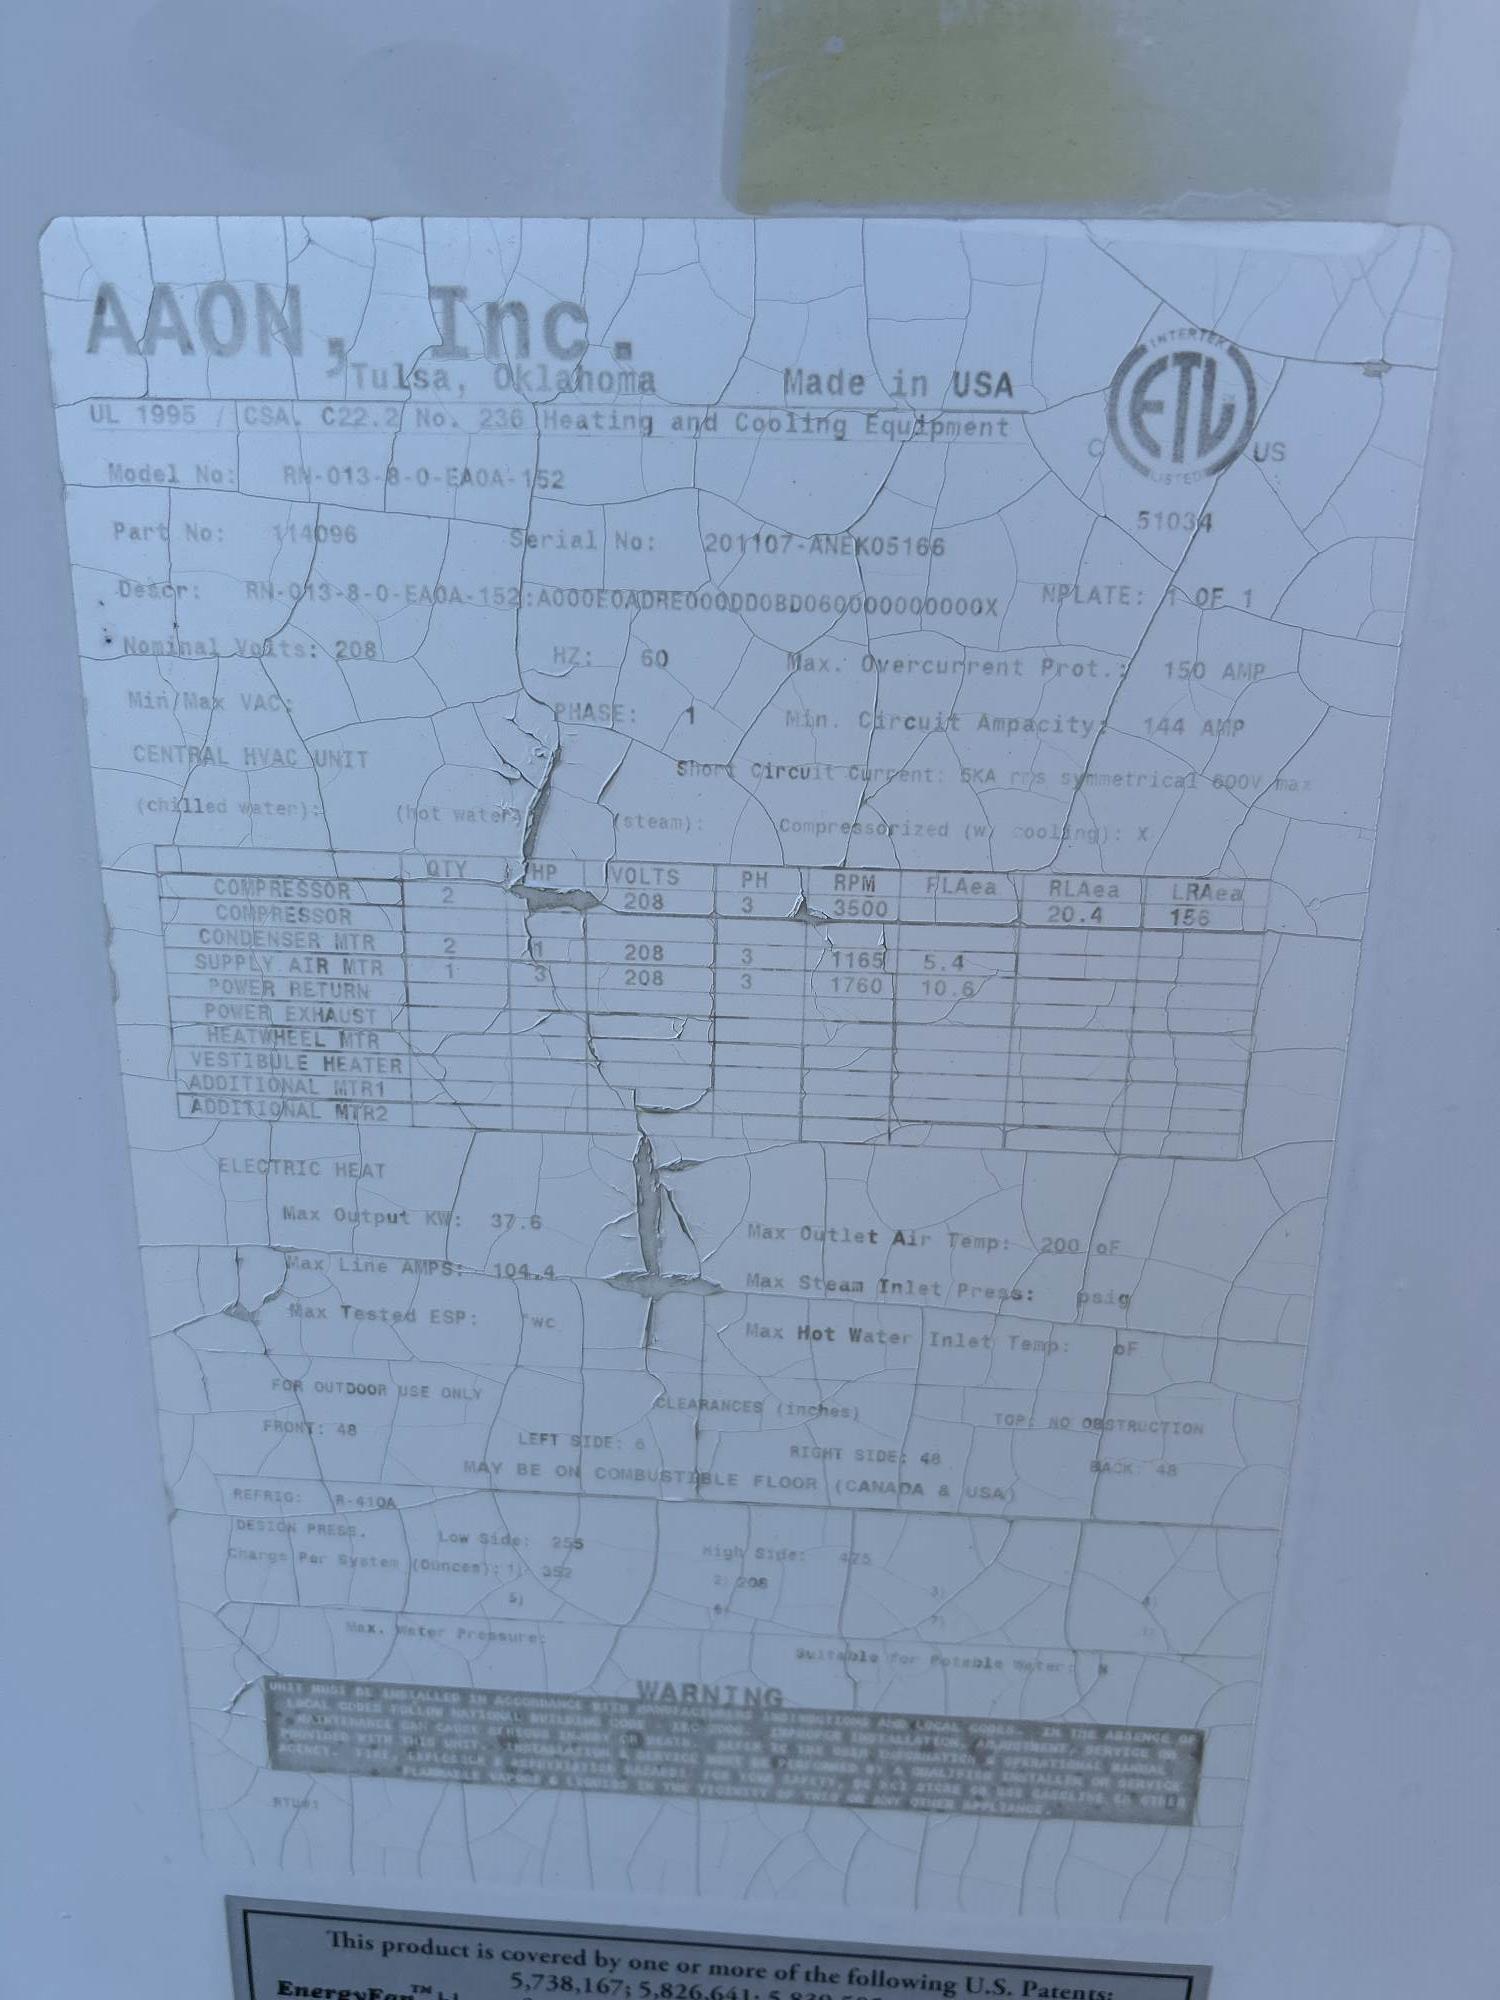 AAON, Inc.
Tulsa, Oklahoma Made in USA
UL 1995 / CSA C22.2 No. 236 Heating and Cooling Equipment
INTERTEK
ETL
LISTED
C US
51034
Model No: RN-013-8-0-EA0A-152
Part No: 114096 Serial No: 201107-ANEK05166
Descr: RN-013-8-0-EA0A-152:A000E0ADRE000DD0BD060000000000X NPLATE: 1 OF 1
Nominal Volts: 208 HZ: 60 Max. Overcurrent Prot.: 150 AMP
Min/Max VAC: PHASE: 1 Min. Circuit Ampacity: 144 AMP
CENTRAL HVAC UNIT Short Circuit Current: 5KA rms symmetrical 600V max
(chilled water): (hot water) (steam): Compressorized (w/ cooling): X
QTY HP VOLTS PH RPM FLAea RLAea LRAea
COMPRESSOR 2 208 3 3500 20.4 156
COMPRESSOR
CONDENSER MTR 2 1 208 3 1165 5.4
SUPPLY AIR MTR 1 3 208 3 1760 10.6
POWER RETURN
POWER EXHAUST
HEATWHEEL MTR
VESTIBULE HEATER
ADDITIONAL MTR1
ADDITIONAL MTR2
ELECTRIC HEAT
Max Output KW: 37.6 Max Outlet Air Temp: 200 oF
Max Line AMPS: 104.4 Max Steam Inlet Press: psig
Max Tested ESP: "wc Max Hot Water Inlet Temp: oF
FOR OUTDOOR USE ONLY CLEARANCES (inches) TOP: NO OBSTRUCTION
FRONT: 48 LEFT SIDE: 6 RIGHT SIDE: 48 BACK: 48
MAY BE ON COMBUSTIBLE FLOOR (CANADA & USA)
REFRIG: R-410A
DESIGN PRESS. Low Side: 255 High Side: 475
Charge Per System (Ounces): 1) 352 2) 208 3) 4)
5) 6) 7)
Max. Water Pressure: Suitable for Potable Water: N
WARNING
UNIT MUST BE INSTALLED IN ACCORDANCE WITH MANUFACTURERS INSTRUCTIONS AND LOCAL CODES. IN THE ABSENCE OF
LOCAL CODES FOLLOW NATIONAL BUILDING CODE IMPROPER INSTALLATION, ADJUSTMENT, SERVICE OR
MAINTENANCE CAN CAUSE SERIOUS INJURY OR DEATH. REFER TO THE USER INFORMATION & OPERATIONAL MANUAL
PROVIDED WITH THIS UNIT. INSTALLATION & SERVICE MUST BE PERFORMED BY A QUALIFIED INSTALLER OR SERVICE
AGENCY. FIRE, EXPLOSION & ASPHYXIATION HAZARD: FOR YOUR SAFETY, DO NOT STORE OR USE GASOLINE OR OTHER
FLAMMABLE VAPORS & LIQUIDS IN THE VICINITY OF THIS OR ANY OTHER APPLIANCE.
This product is covered by one or more of the following U.S. Patents:
5,738,167; 5,826,641;